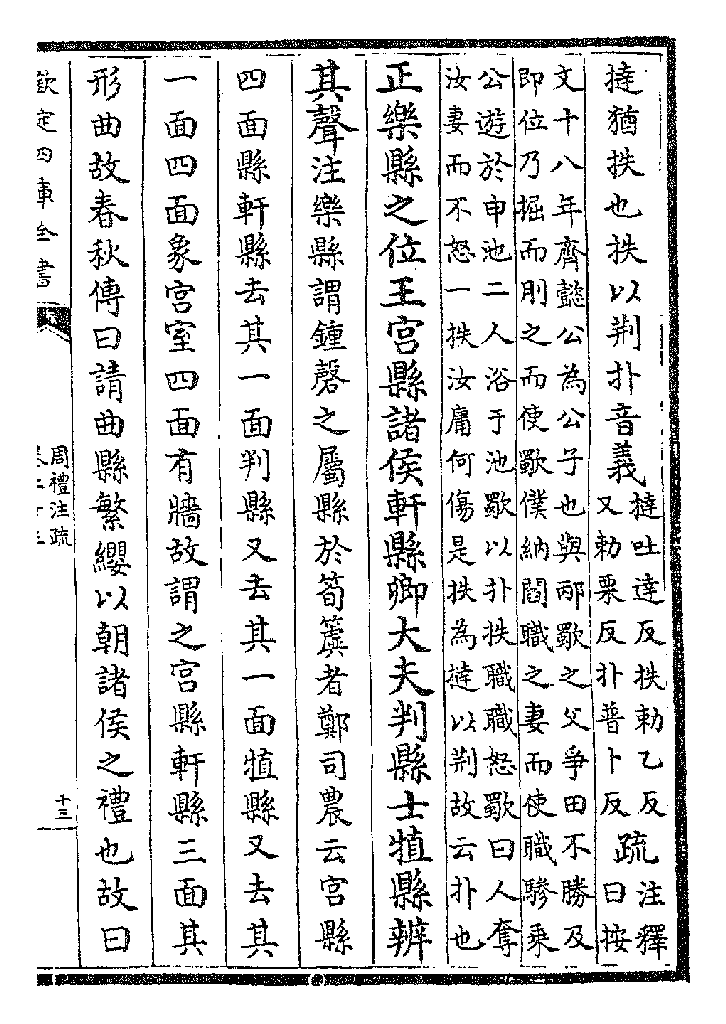 撻猶抶也抶以荆扑音義撻吐達反抶勅乙反
又勅栗反扑普卜反疏注釋
曰按
文十八年齊懿公為公子也與邴歜之父爭田不勝及
即位乃掘而刖之而使歜僕納閻職之妻而使職驂乘
公遊於申池二人浴于池歜以扑抶職職怒歜曰人奪
汝妻而不怒一抶汝庸何傷是抶為撻以荆故云扑也
正樂縣之位王宮縣諸侯軒縣卿大夫判縣士犆縣辨
其聲注樂縣謂鍾磬之屬縣於筍簴者鄭司農云宮縣
四面縣軒縣去其一面判縣又去其一面犆縣又去其
一面四面象宮室四面有牆故謂之宮縣軒縣三面其
形曲故春秋傳曰請曲縣繁纓以朝諸侯之禮也故曰
欽定四庫全書
周禮注疏
卷二十三
十三